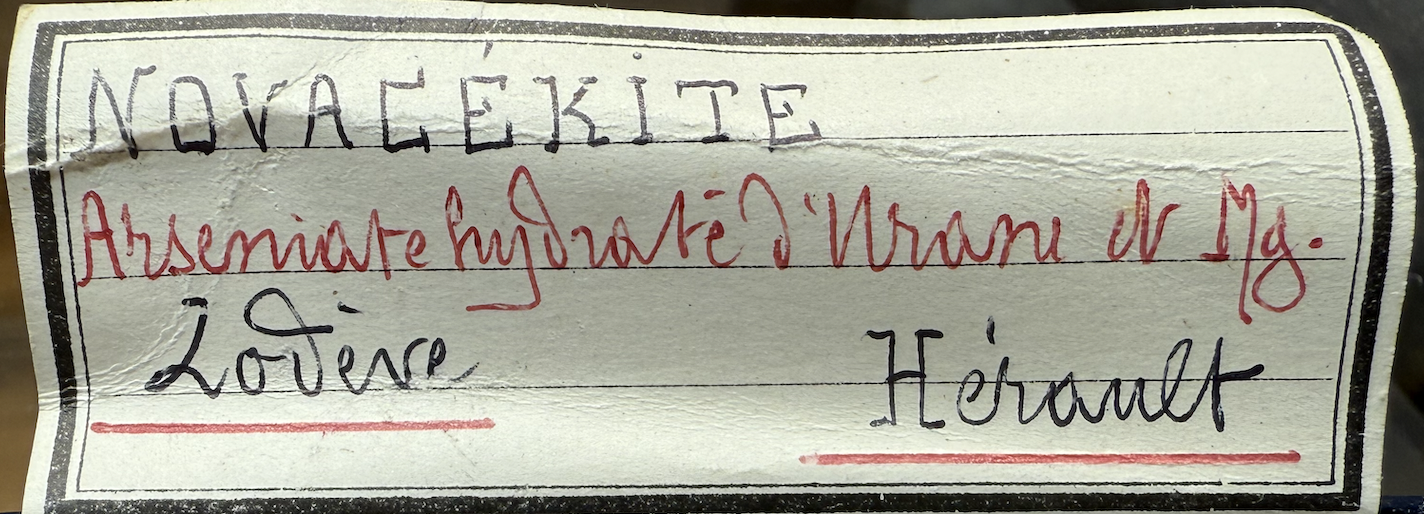 NOVACÉKITE
Arseniate hydraté d'Urane et Mg.
Lodève Hérault